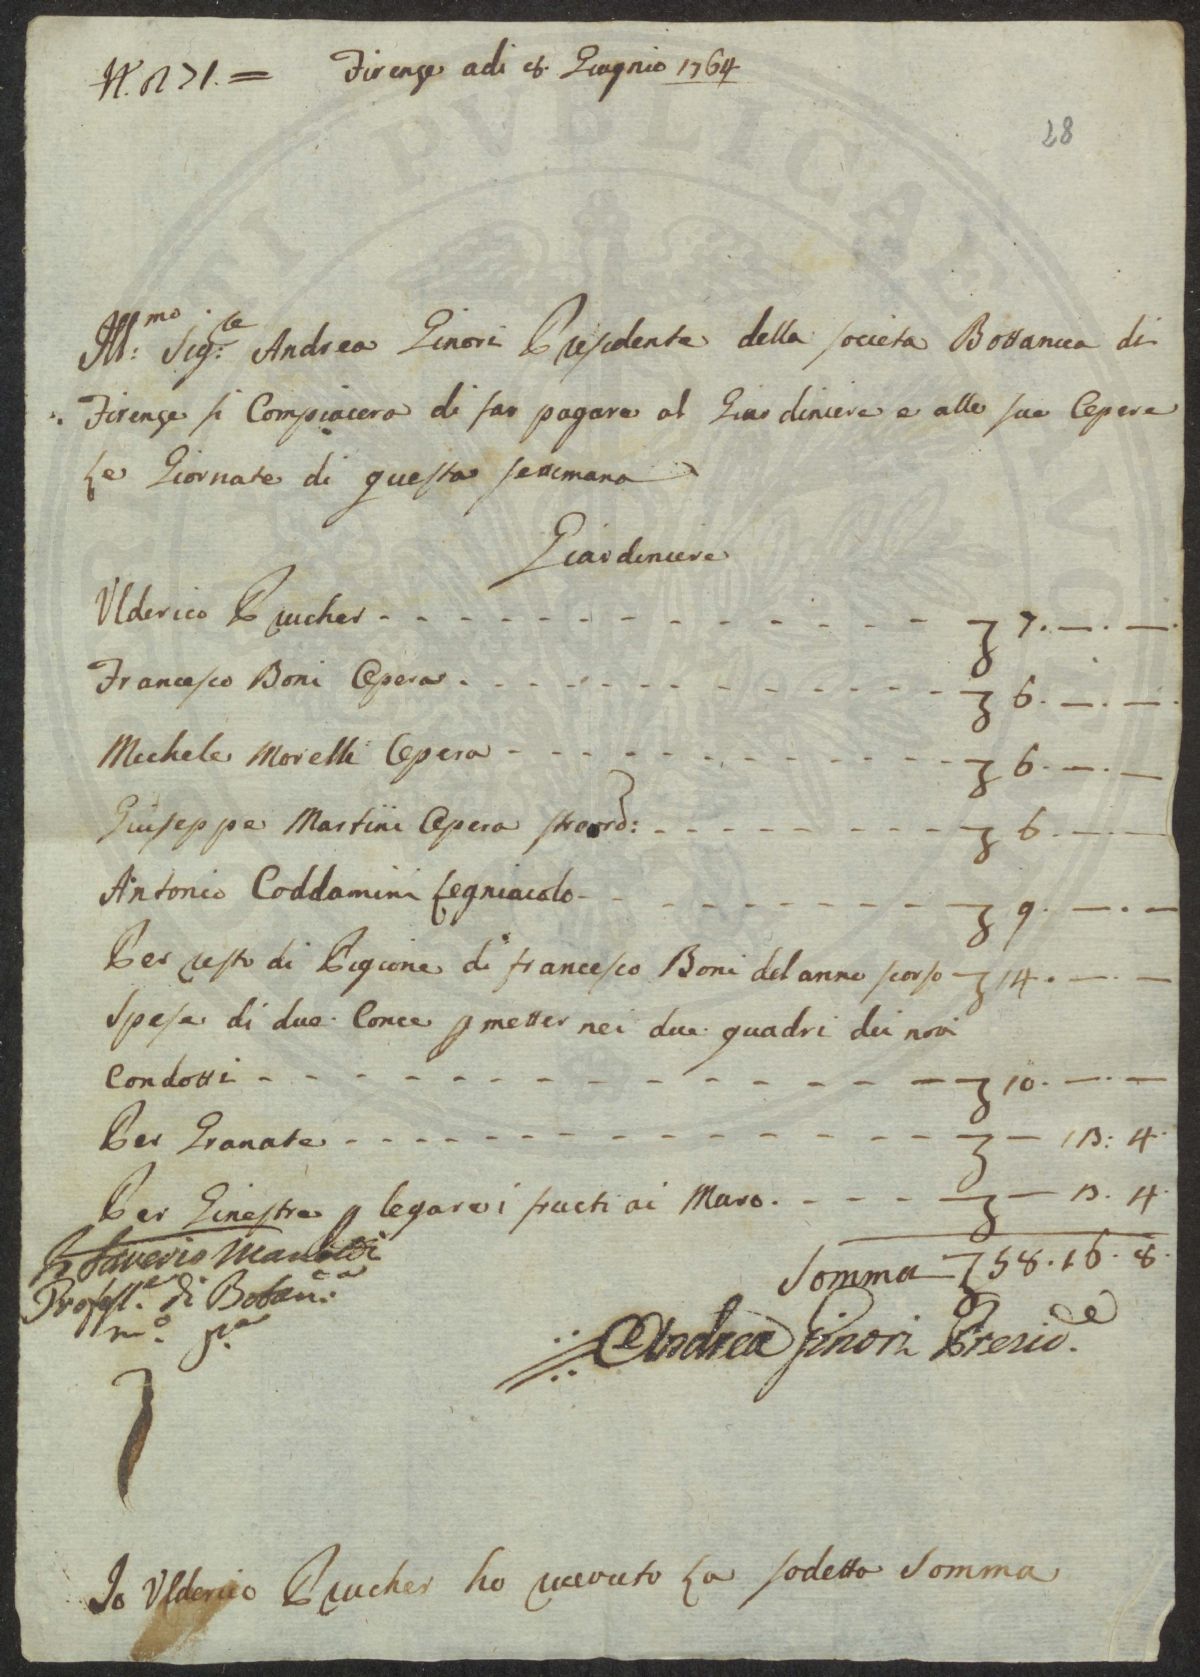 N. 271. = Firenze adi 8. Giugnio 1764
28
Ill:mo Sig:re Andrea Ginori Presidente della societa Bottanica di
Firenze si Compiacera di far pagare al Giardiniere e alle sue Opere
Le Giornate di questa settimana
Giardiniere
Ulderico Prucher - - - - - - - - - - - - 7. —. —.
Francesco Boni Opera - - - - - - - - - - - - 6. —. —.
Michele Morelli Opera - - - - - - - - - - - 6. —. —
Giuseppe Martini Opera straord: - - - - - - - - 6. — —
Antonio Coddamini Legniaiolo - - - - - - - - 9. —. —
Per resto di Pigione di francesco Boni del anno scorso 14. — —
Spesa di due Conce p metter nei due quadri dei novi
Condotti - - - - - - - - - - - - - - 10. —. —
Per Granate - - - - - - - - - - - - - — 13: 4
Per Ginestra p legare i frutti ai Muro. - - - - — 13. 4
Somma 58. 16. 8.
Saverio Manetti
Profess.e di Botan.ca
m.o p.a
Andrea Ginori Presid.e
Io Ulderico Prucher ho ricevuto La sodetta Somma
CI PVBLICAE